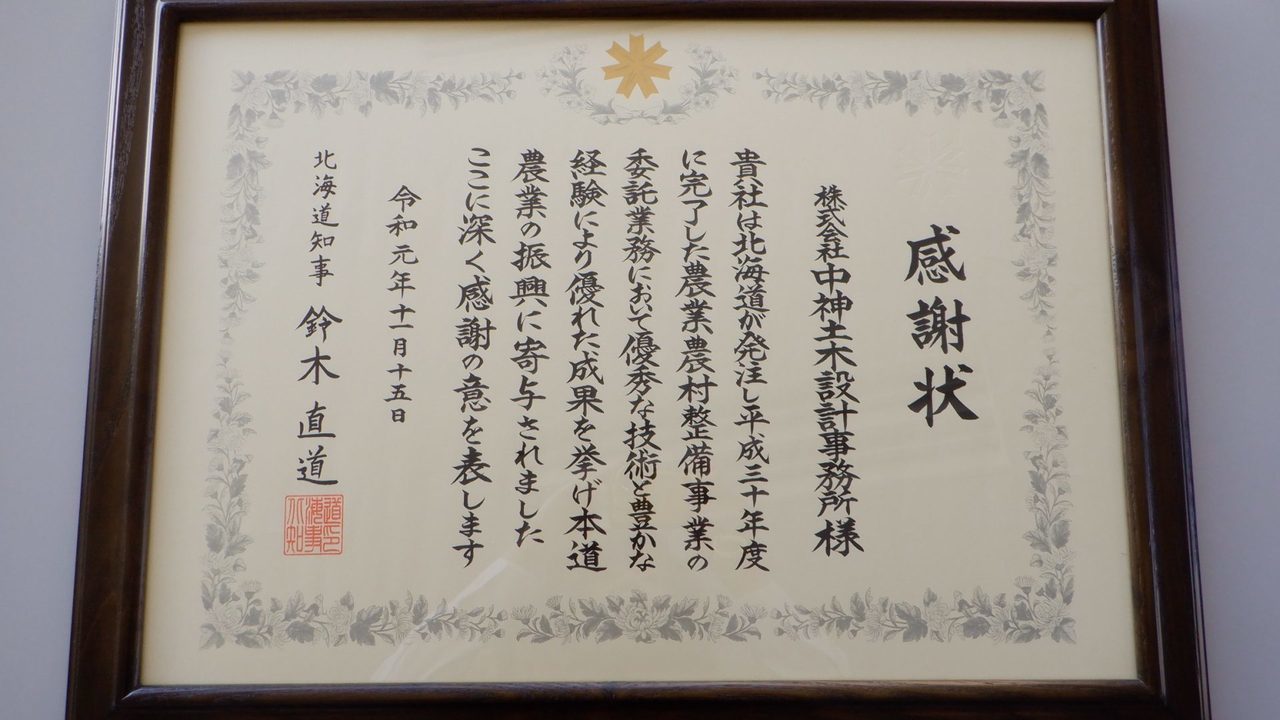 感謝状
株式会社中神土木設計事務所様
貴社は北海道が発注し平成三十年度
に完了した農業農村整備事業の
委託業務において優秀な技術と豊かな
経験により優れた成果を挙げ本道
農業の振興に寄与されました
ここに深く感謝の意を表します
令和元年十一月十五日
北海道知事 鈴木直道